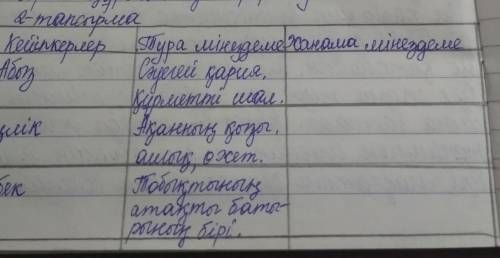 2-тапсырма
Кейіпкерлер Тура мінездеме Жанама мінездеме
Абыз Сәуегей қария,
құрметті шал.
ңлік Ақанның қызы,
ашық, өжет.
бек Тобықтының
атақты баты-
рының бірі.